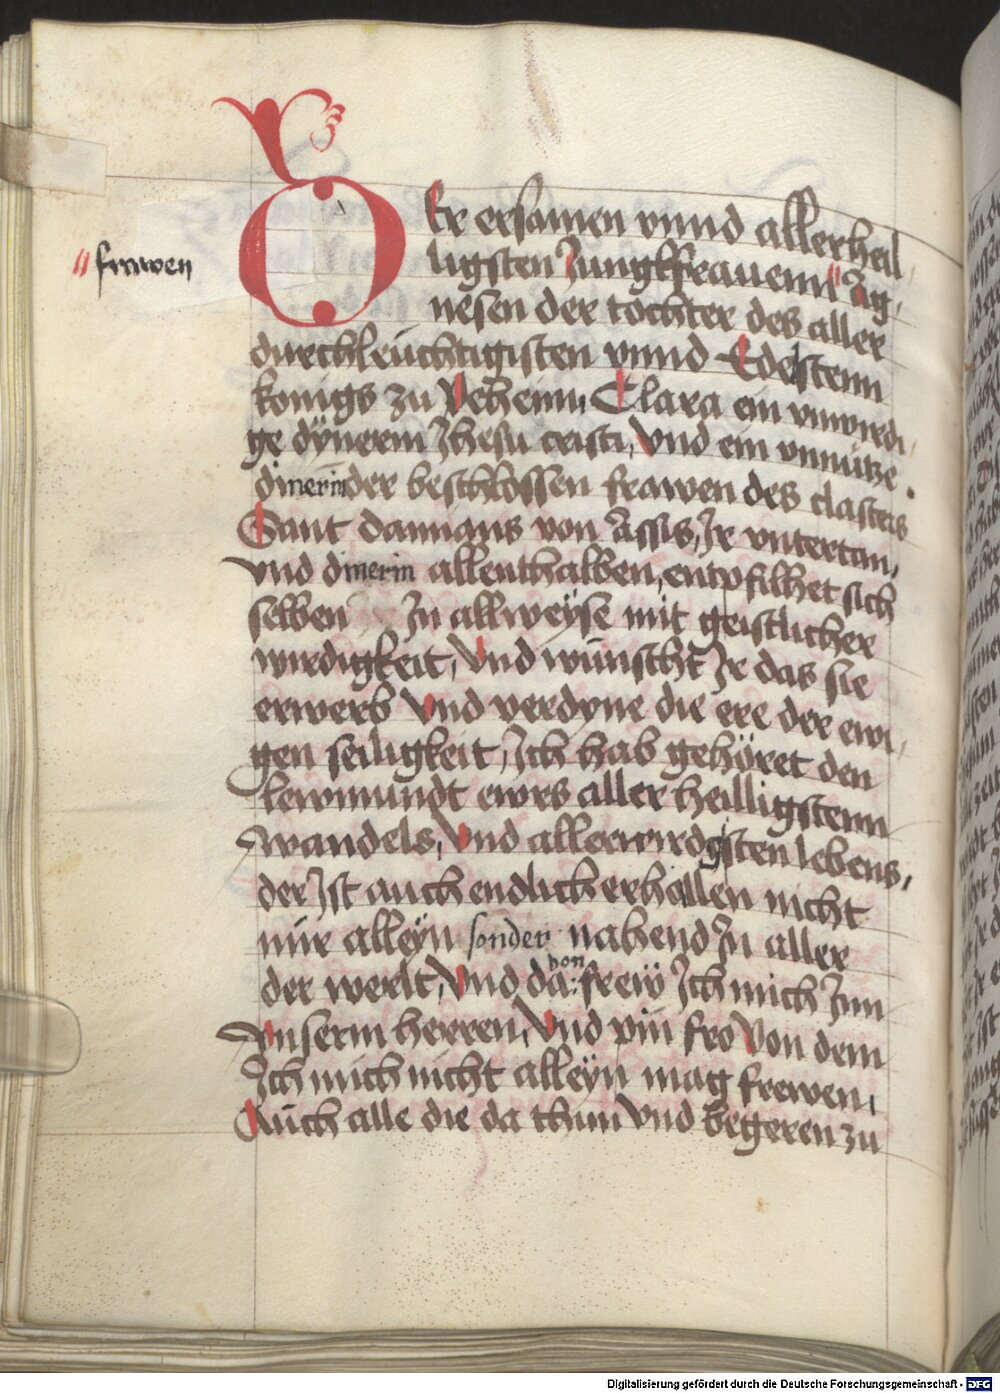 frawen
Der ersamen vnnd allerheil
ligsten Jungkfrauenn Ag,
nesen der tochter des aller
durchleuchtigisten vnnd Edelstenn
konigs zu Behemn, Clara ein vnwirdi,
ge dÿnerin Jhesu cristi, vnd ein vnnutze
dinerin der beschlossen frawen des closters
Sant damians von Assis, Jr vntertan,
vnd dinerin allenthalben, entpfilhet sich
selben Jn allweÿse mit geistlicher
wirdigkeit, Vnd wünscht Jr das sie
erwerb vnd verdyne die ere der ewi,
gen seiligkeit, Jch hab gehöret den
lewmundt ewrs aller heilligstenn
wandels, Vnd allerwirdgsten lebens,
der Jst auch endlich erhollen nicht
mir alleÿn sonder nahend Jn aller
der werlt, Vnd da von frew Jch mich Jnn
vnserm herren, Vnd pin fro Von dem
Jch mich nicht alleyn mag frewen,
Auch alle die da thun vnd begeren zu
Digitalisierung gefördert durch die Deutsche Forschungsgemeinschaft - DFG